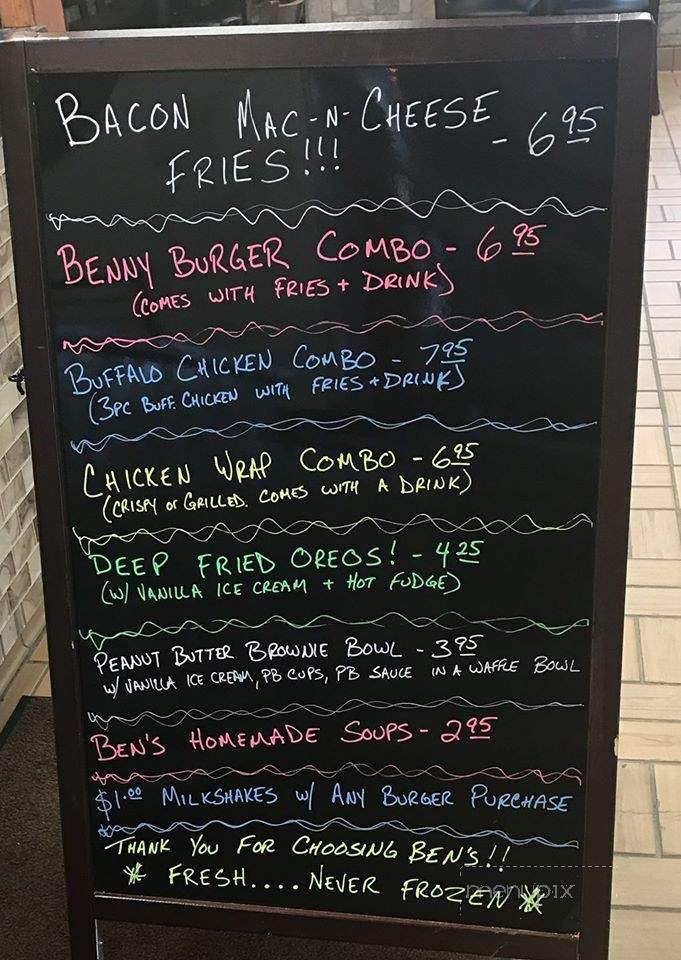 BACON MAC-N-CHEESE
FRIES!!! - 6 95
BENNY BURGER COMBO - 6 95
(COMES WITH FRIES + DRINK)
BUFFALO CHICKEN COMBO - 7 95
(3PC BUFF. CHICKEN WITH FRIES + DRINK)
CHICKEN WRAP COMBO - 6 95
(CRISPY or GRILLED. COMES WITH A DRINK)
DEEP FRIED OREOS! - 4 25
(W/ VANILLA ICE CREAM + HOT FUDGE)
PEANUT BUTTER BROWNIE BOWL - 3 95
W/ VANILLA ICE CREAM, PB CUPS, PB SAUCE IN A WAFFLE BOWL
BEN'S HOMEMADE SOUPS - 2 95
$1.00 MILKSHAKES W/ ANY BURGER PURCHASE
THANK YOU FOR CHOOSING BEN'S!!
* FRESH.... NEVER FROZEN *
menupix